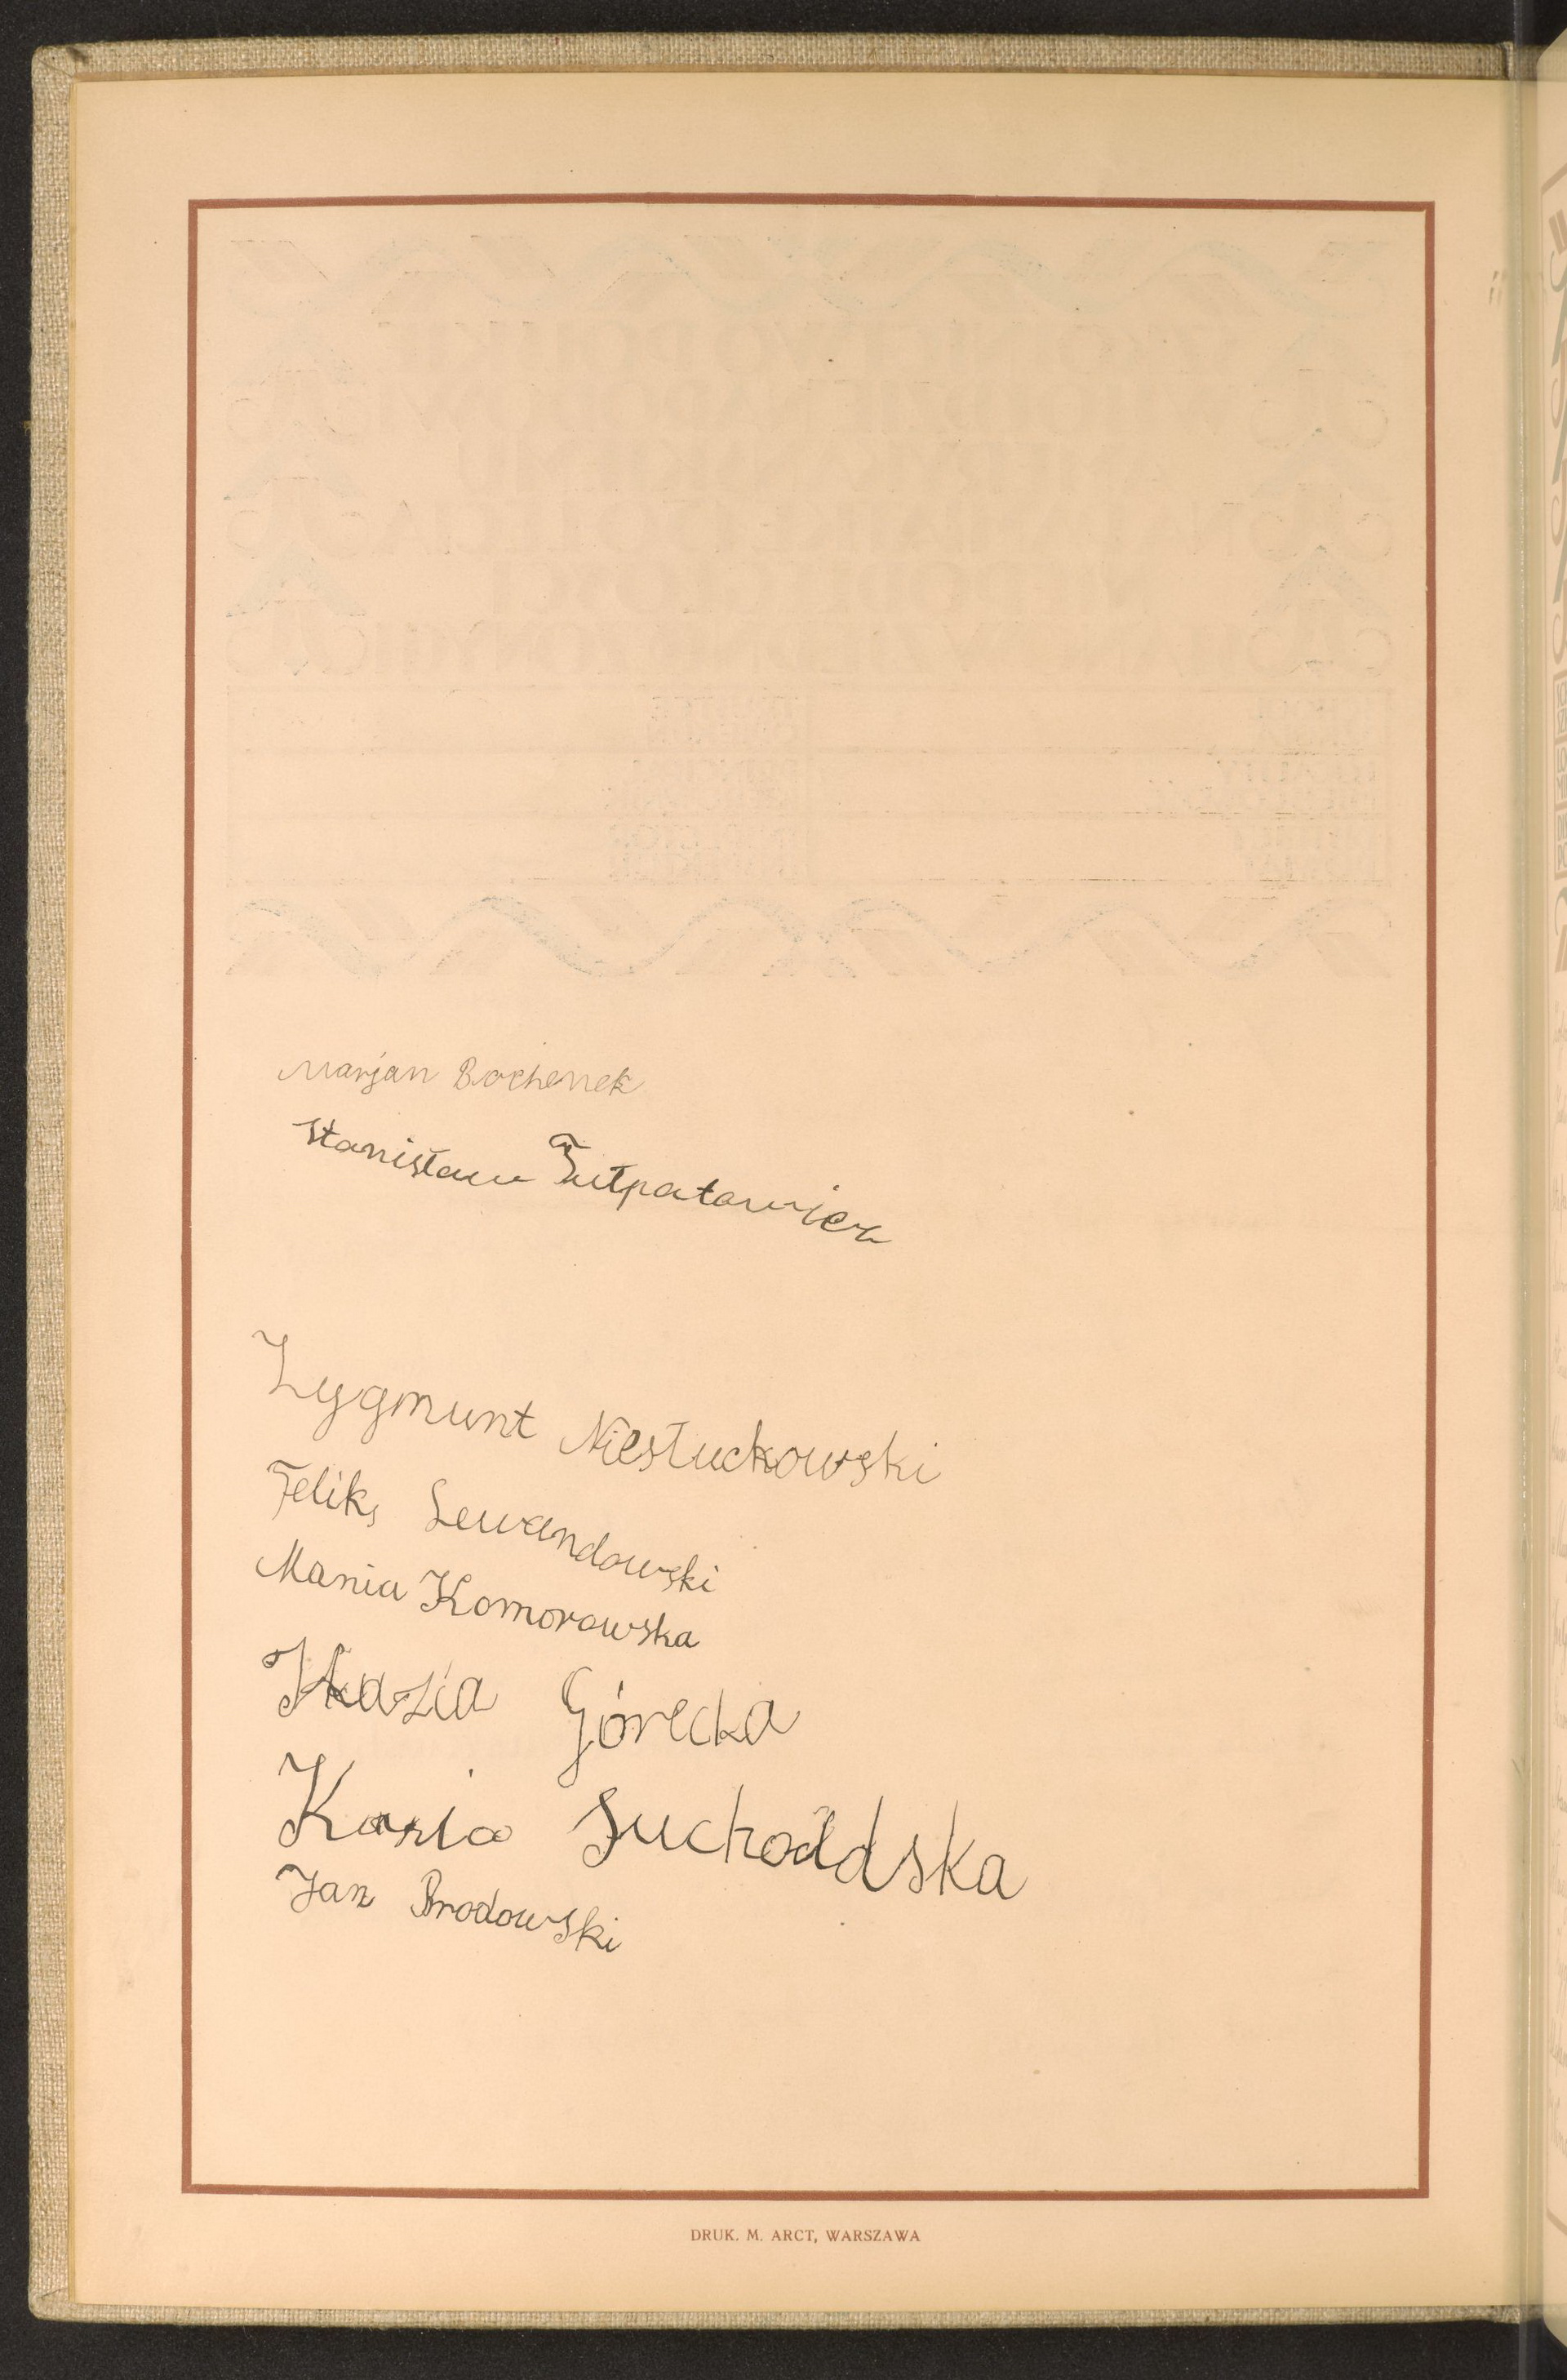 Marjan Bochenek
Stanisław Tułpatowicz
Zygmunt Niesłuchowski
Feliks Lewandowski
Mania Komorowska
Kazia Górecka
Kazia
Jan Brodowski
DRUK. M. ARCT, WARSZAWA